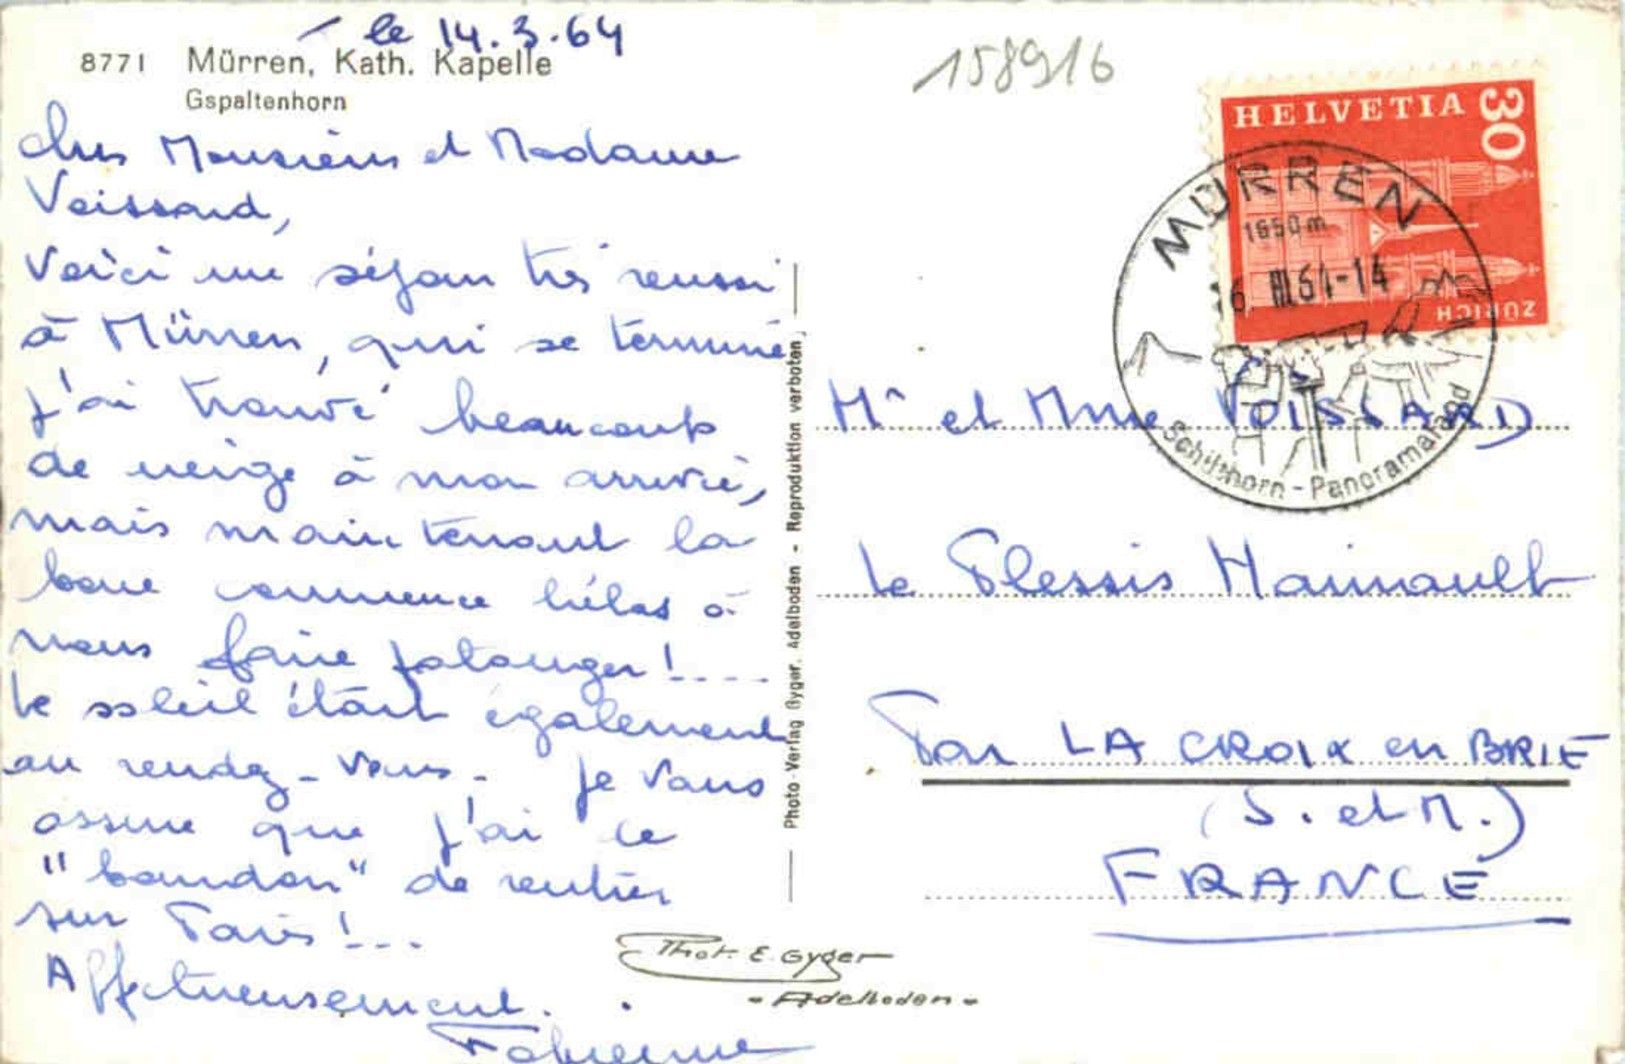 le 14.3.64
8771 Mürren, Kath. Kapelle
Gspaltenhorn
158916
Chers Monsieur et Madame
Voissard,
Voici un séjour très réussi
à Mürren, qui se termine
j'ai trouvé beaucoup
de neige à mon arrivée,
mais maintenant la
boue commence hélas à
nous faire patauger!....
Le soleil était également
au rendez-vous. Je vous
assure que j'ai le
"bourdon" de rentrer
sur Paris!...
Affectueusement.
Fabienne
Photo-Verlag Gyger, Adelboden - Reproduktion verboten.
Phot. E. Gyger
- Adelboden -
HELVETIA 30
ZÜRICH
MÜRREN
1650m
16 III 64-14
Schilthorn-Panoramaland
Mr et Mme VOISSARD
Le Plessis Hainault
Par LA CROIX en BRIE
(S. et M.)
FRANCE